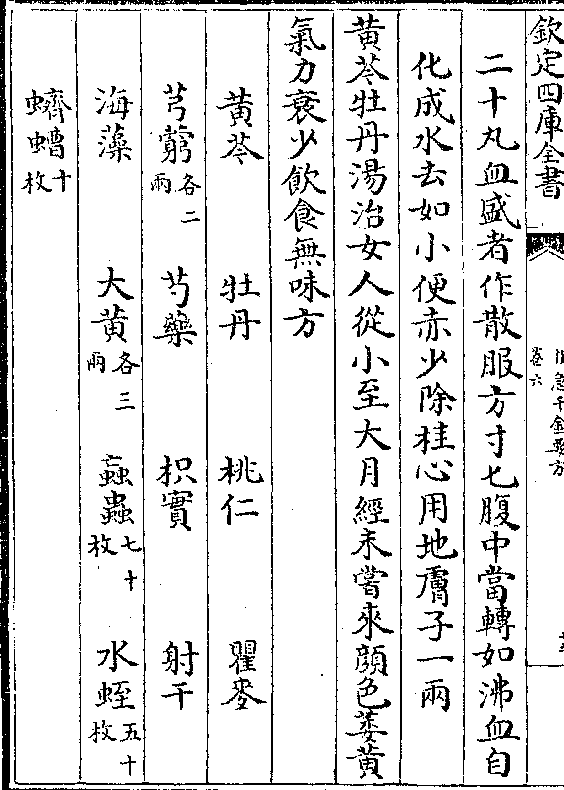 欽定四庫全書
卷六
二十丸血盛者作散服方寸七腹中當轉如沸血自
化成水去如小便赤少除桂心用地膚子一兩
黄芩牡丹湯治女人從小至大月經未嘗來顔色萎黄
氣力衰少飲食無味方
黄芩 牡丹 桃仁 瞿麥
芎藭各二兩 芍藥 枳實 射干
海藻 大黄各三兩 蝱蟲七十枚 水蛭五十枚
蠐螬十枚